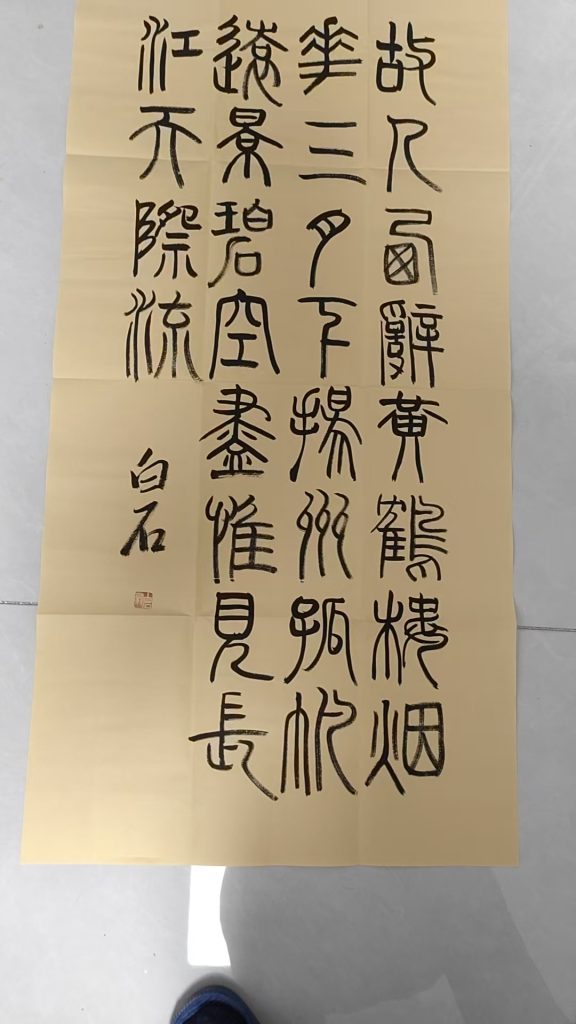 故人西辭黃鶴樓烟
華三月下揚州孤帆
遠景碧空盡惟見長
江天際流
白石